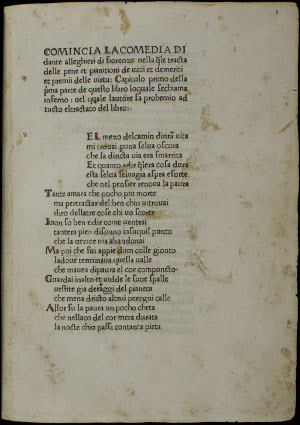 COMINCIA LACOMEDIA DI
dante alleghieri di fiorenze nella q̃le tracta
delle pene et punitioni de uitii et demeriti
et premii delle uirtu: Capitolo primo della
p̃ma parte de questo libro loquale sechiama
inferno: nel quale lautore fa prohemio ad
tucto eltractato del libro:·
EL mezo delcamin dinrã uita
mi trouai puna selua oscura
che la diricta uia era smarrita
Et quanto adir q̃lera cosa dura
esta selua seluagia aspra eforte
che nel pensier renoua la paura
Tanto amara che pocho piu morte
ma pertractar del ben chio uitrouai
diro dellatre cose chi uo scorte
I non so ben ridir come uentrai
tantera pien disonno insuquil punto
che la uerace uia abandonai
Ma poi che fui appie dum colle gionto
ladoue terminaua quella ualle
che mauea dipaura el cor compuncto
Guardai inalto et uidde le sue spalle
uestite gia deraggi del pianeta
che mena dricto altrui perogni calle
Allor fu la paura un pocho cheta
che nellaco del cor mera durata
la nocte chio passi contanta pieta